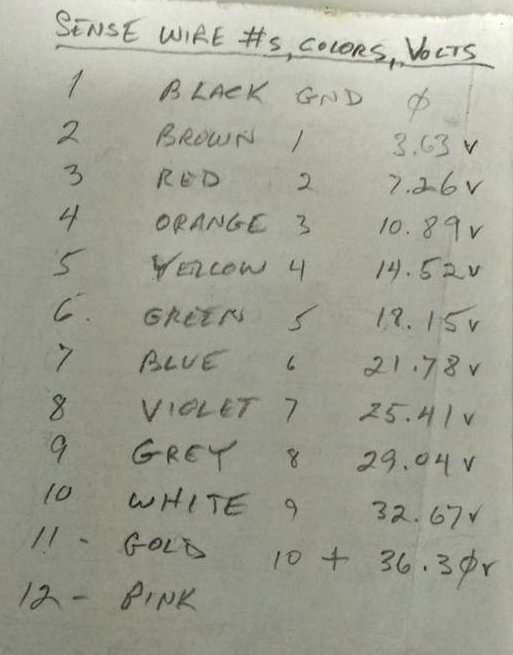 SENSE WIRE #s, COLORS, VOLTS
1 BLACK GND Ø
2 BROWN 1 3.63 v
3 RED 2 7.26 v
4 ORANGE 3 10.89 v
5 YELLOW 4 14.52 v
6. GREEN 5 18.15 v
7 BLUE 6 21.78 v
8 VIOLET 7 25.41 v
9 GREY 8 29.04 v
10 WHITE 9 32.67 v
11 - GOLD 10 + 36.3Ø v
12 - PINK